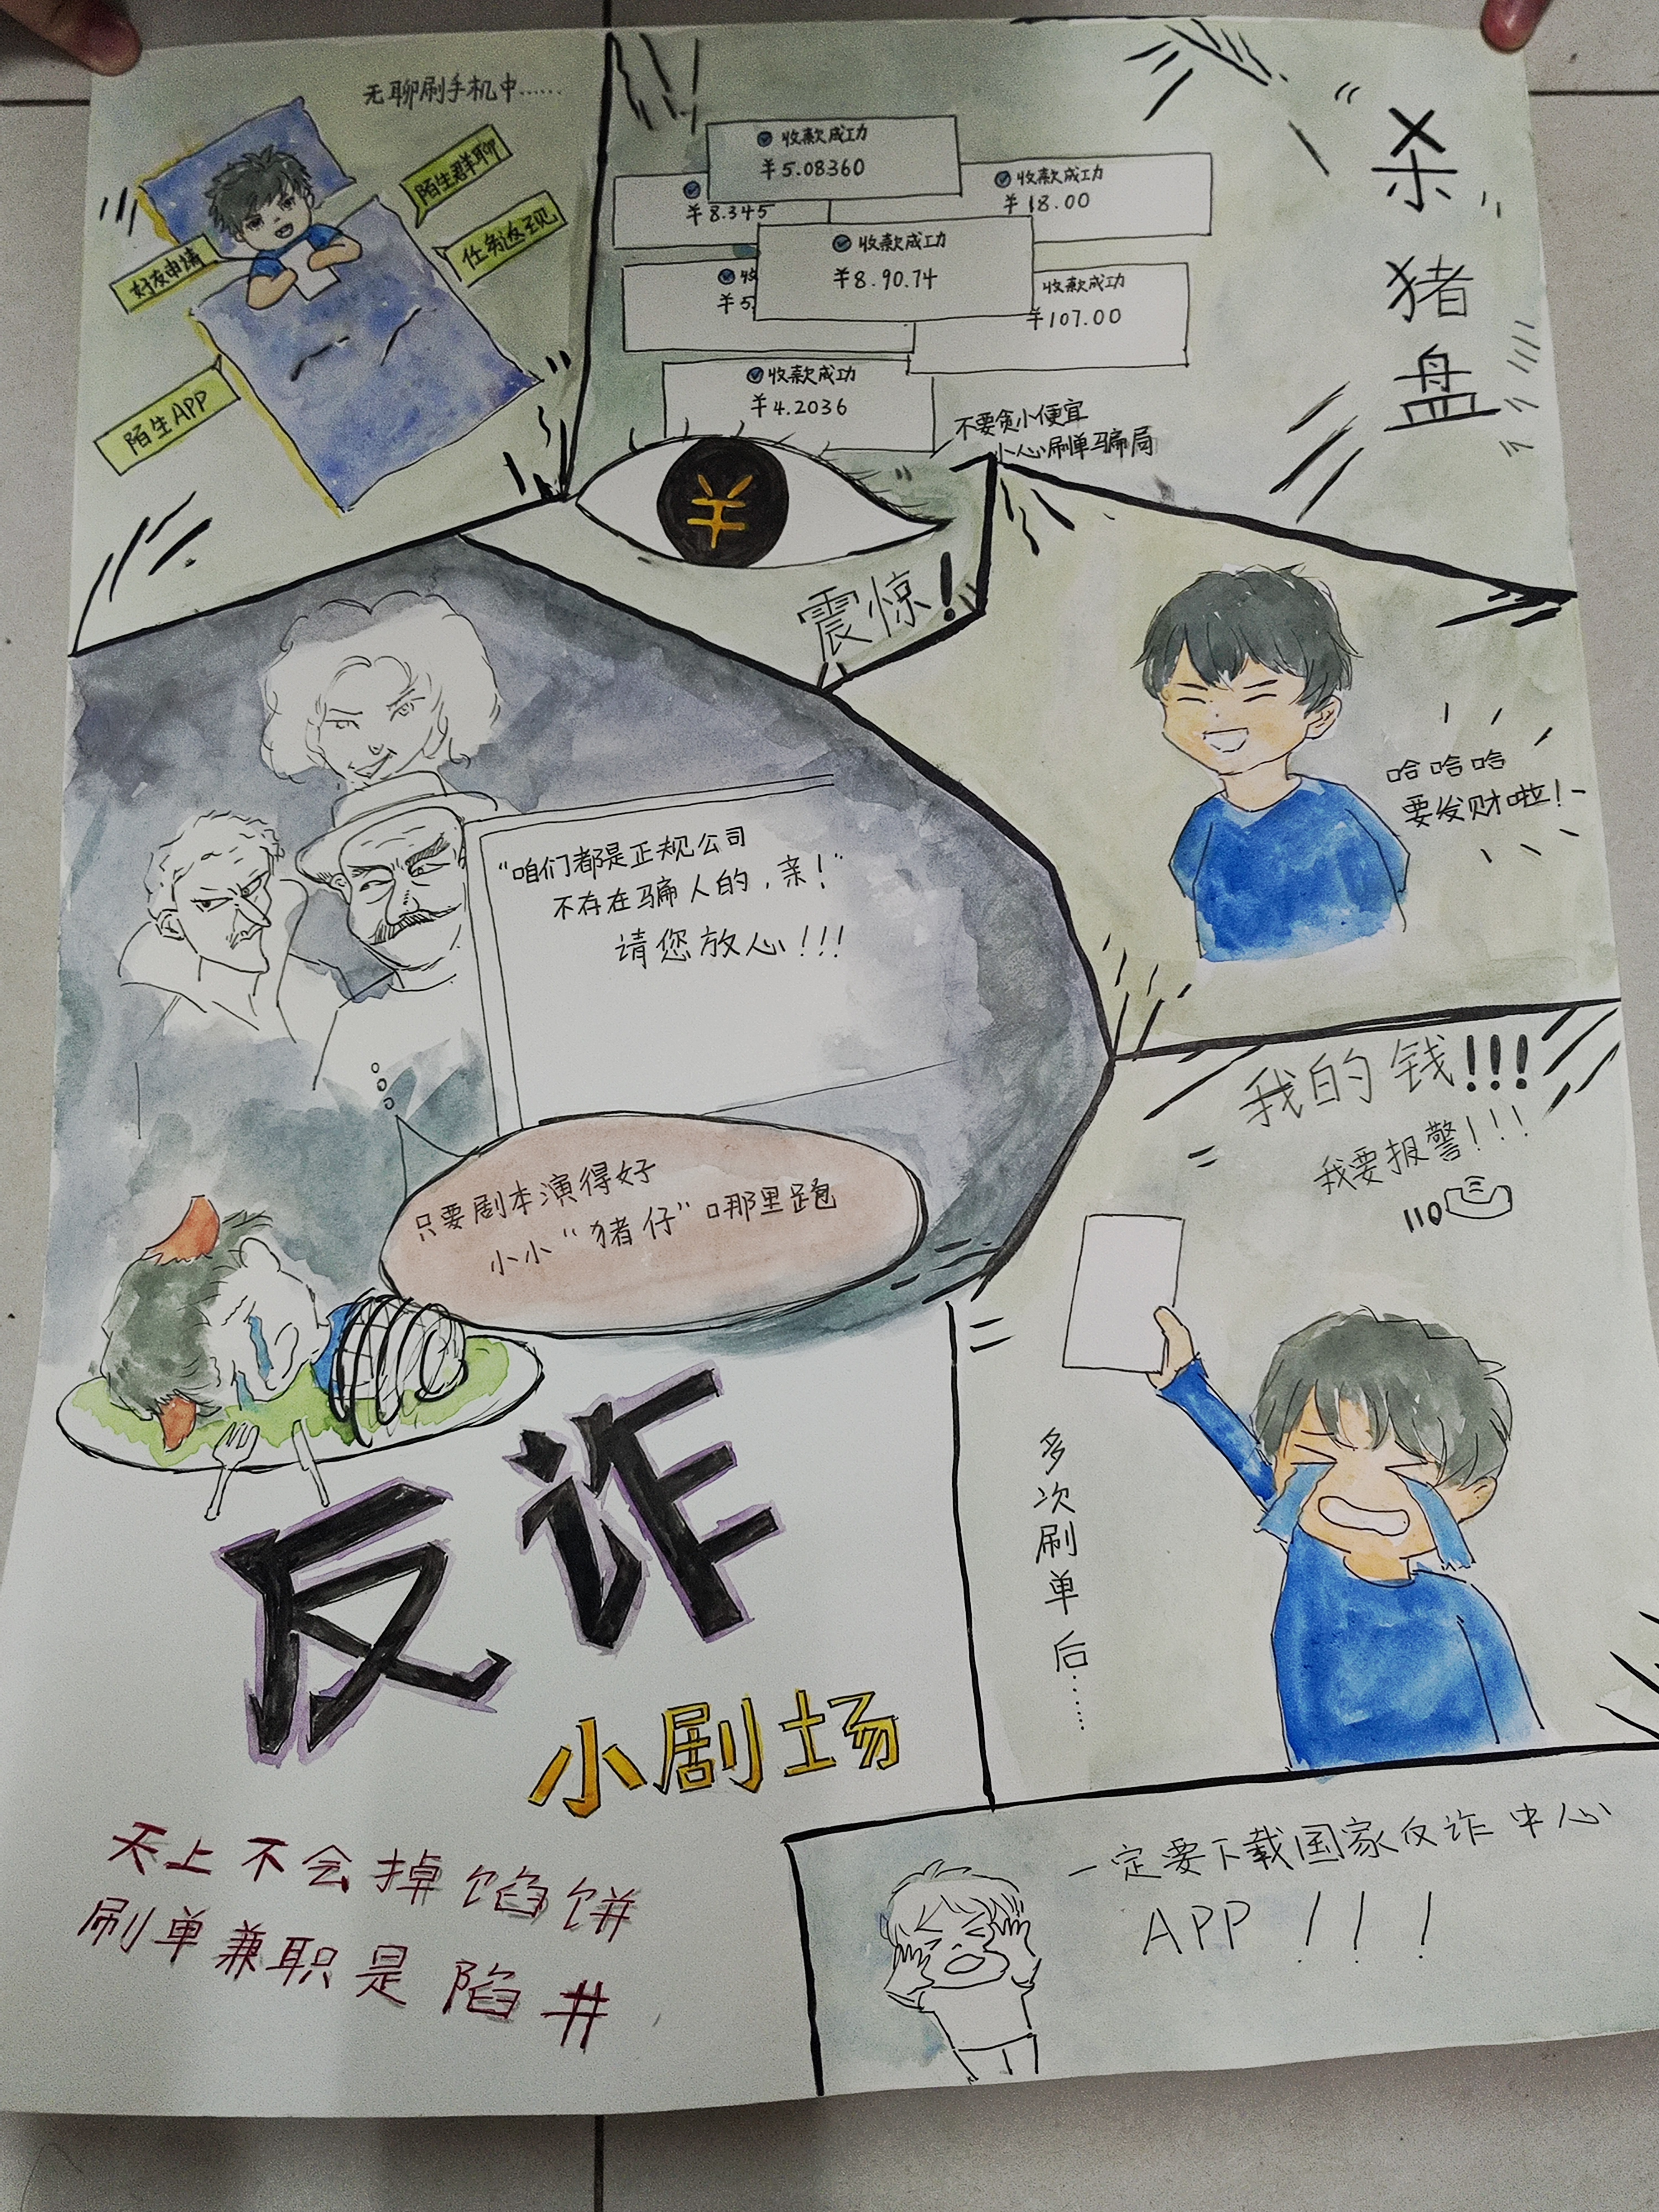 无聊刷手机中……
陌生群聊
任务返现
好友申请
陌生APP
收款成功
¥5.08360
¥8.345
收款成功
¥18.00
收款成功
¥8.90.74
收
¥5.
收款成功
¥107.00
收款成功
¥4.2036
不要贪小便宜
小心刷单骗局
杀猪盘
¥
震惊!
哈哈哈
要发财啦!
"咱们都是正规公司
不存在骗人的,亲!"
请您放心!!!
只要剧本演得好
小小"猪仔"哪里跑
我的钱!!!
我要报警!!!
110
多次刷单后……
反诈
小剧场
天上不会掉馅饼
刷单兼职是陷井
一定要下载国家反诈中心
APP!!!